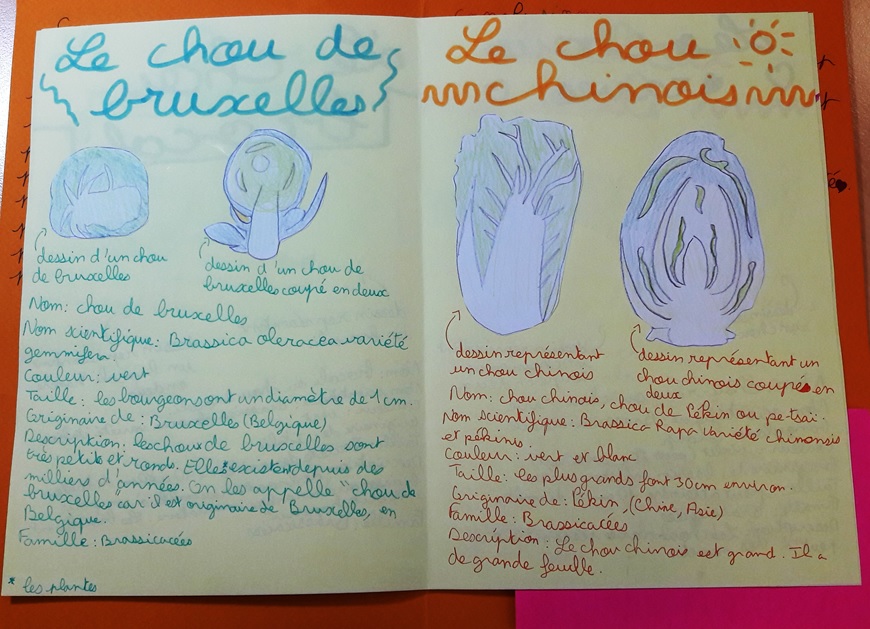 Le chou de
bruxelles
dessin d'un chou
de bruxelles
dessin d'un chou de
bruxelles coupé en deux
Nom: chou de bruxelles
Nom scientifique: Brassica oleracea variété
gemmifera.
Couleur: vert
Taille: les bourgeons ont un diamètre de 1 cm.
Originaire de: Bruxelles (Belgique)
Description: les choux de bruxelles sont
très petits et ronds. Elles* existent depuis des
milliers d'années. On les appelle "chou de
bruxelles" car il est originaire de Bruxelles, en
Belgique.
Famille: Brassicacées
* les plantes
Le chou
chinois
dessin représentant
un chou chinois
dessin représentant un
chou chinois coupé en
deux
Nom: chou chinois, chou de Pékin ou pe-tsaï.
Nom scientifique: Brassica Rapa variété chinensis
et pékinis.
Couleur: vert et blanc
Taille: les plus grands font 30 cm environ.
Originaire de: Pékin, (Chine, Asie)
Famille: Brassicacées
Description: Le chou chinois est grand. Il a
de grande feuille.